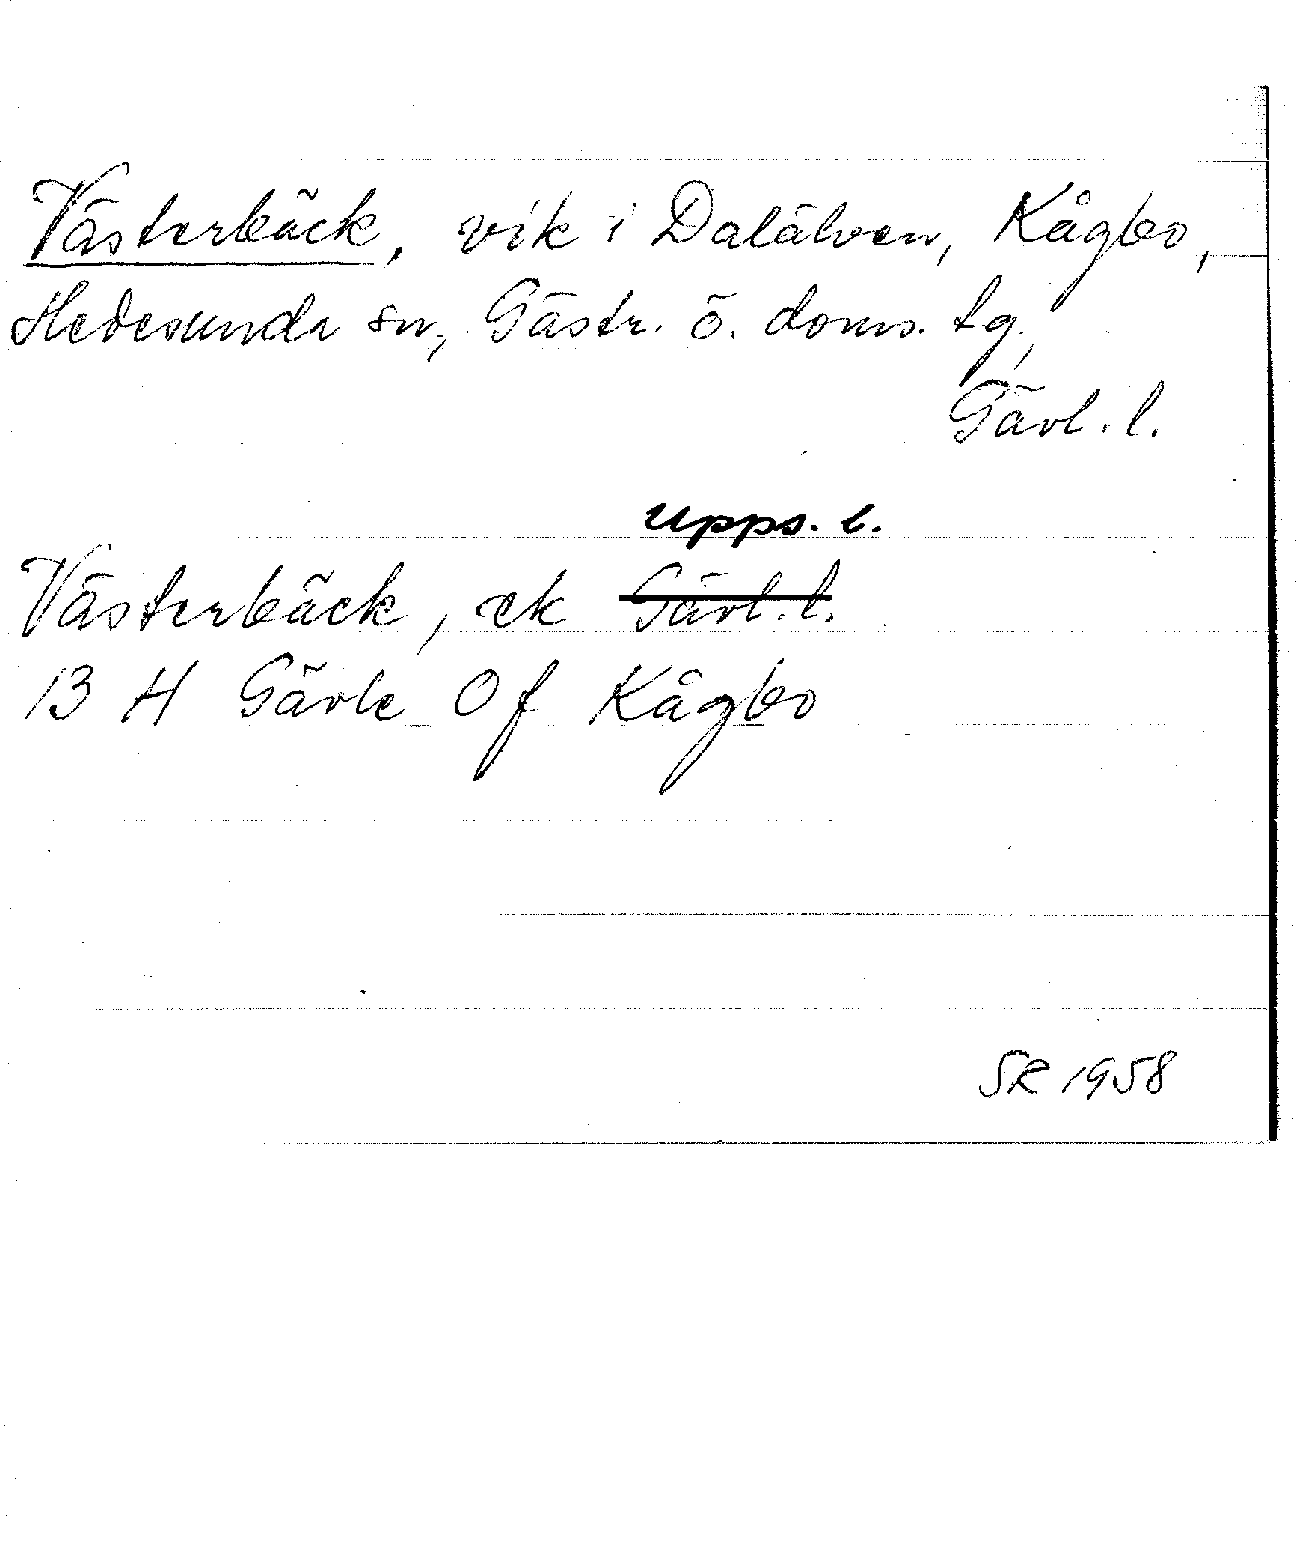 Västerbäck, vik i Dalälven, Kågbo,
Hedesunda sn, Gästr. ö. doms. tg,
Gävl. l.
Upps. l.
Västerbäck, ek Gävl. l.
13 H Gävle 0 f Kågbo
SR 1958